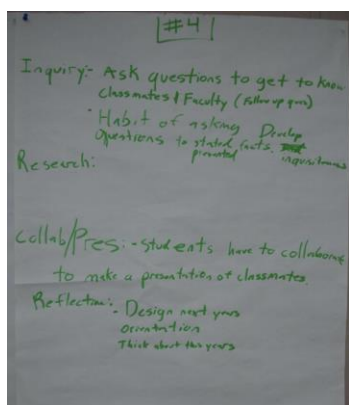 #4
Inquiry:- Ask questions to get to know
classmates / Faculty (Follow up ques)
· Habit of asking Develop
Questions to stated facts.
presented inquisitiveness
Research:
Collab/Pres: - students have to collaborate
to make a presentation of classmates.
Reflection: - Design next years
orientation
Think about this years